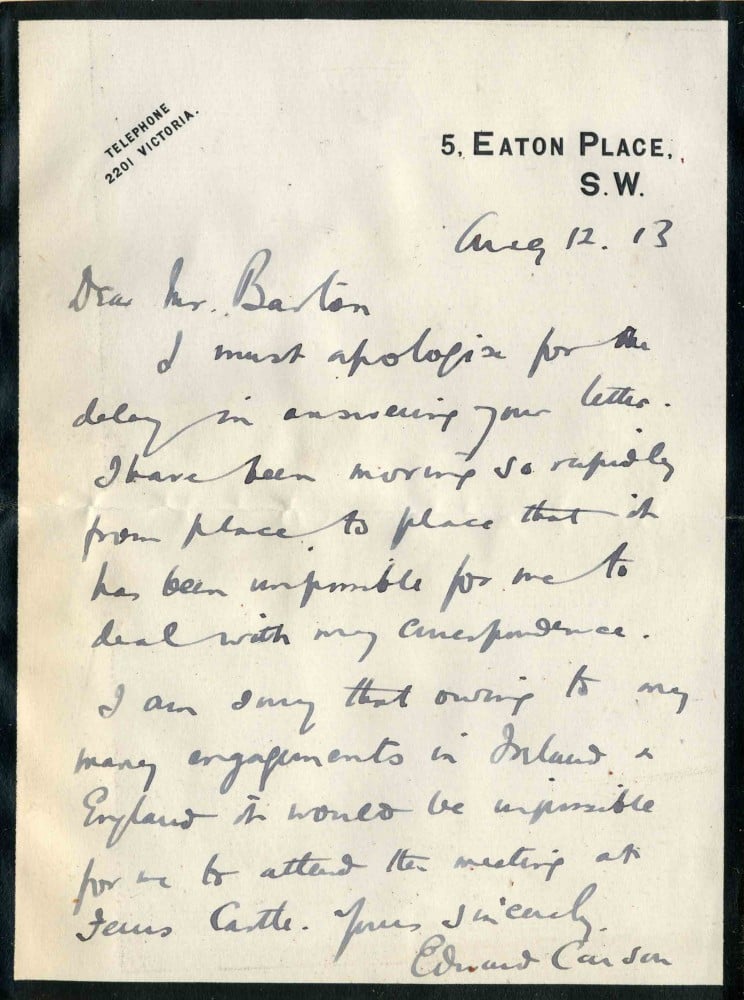 TELEPHONE
2201 VICTORIA.
5, EATON PLACE,
S.W.
Aug 12. 13
Dear Mr. Barton
I must apologise for the
delay in answering your letter.
I have been moving so rapidly
from place to place that it
has been impossible for me to
deal with my correspondence.
I am sorry that owing to my
many engagements in Ireland &
England it would be impossible
for me to attend the meeting at
Ferns Castle. Yours sincerely.
Edward Carson